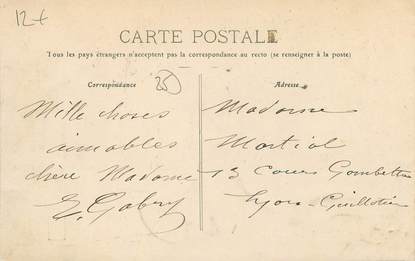 12+
CARTE POSTALE
Tous les pays étrangers n'acceptent pas la correspondance au recto (se renseigner à la poste)
Correspondance
20
Mille choses
aimables
chère Madame
E. Gabry
Adresse
Madame
Martial
13 cours Gambetta
Lyon-Guillotière